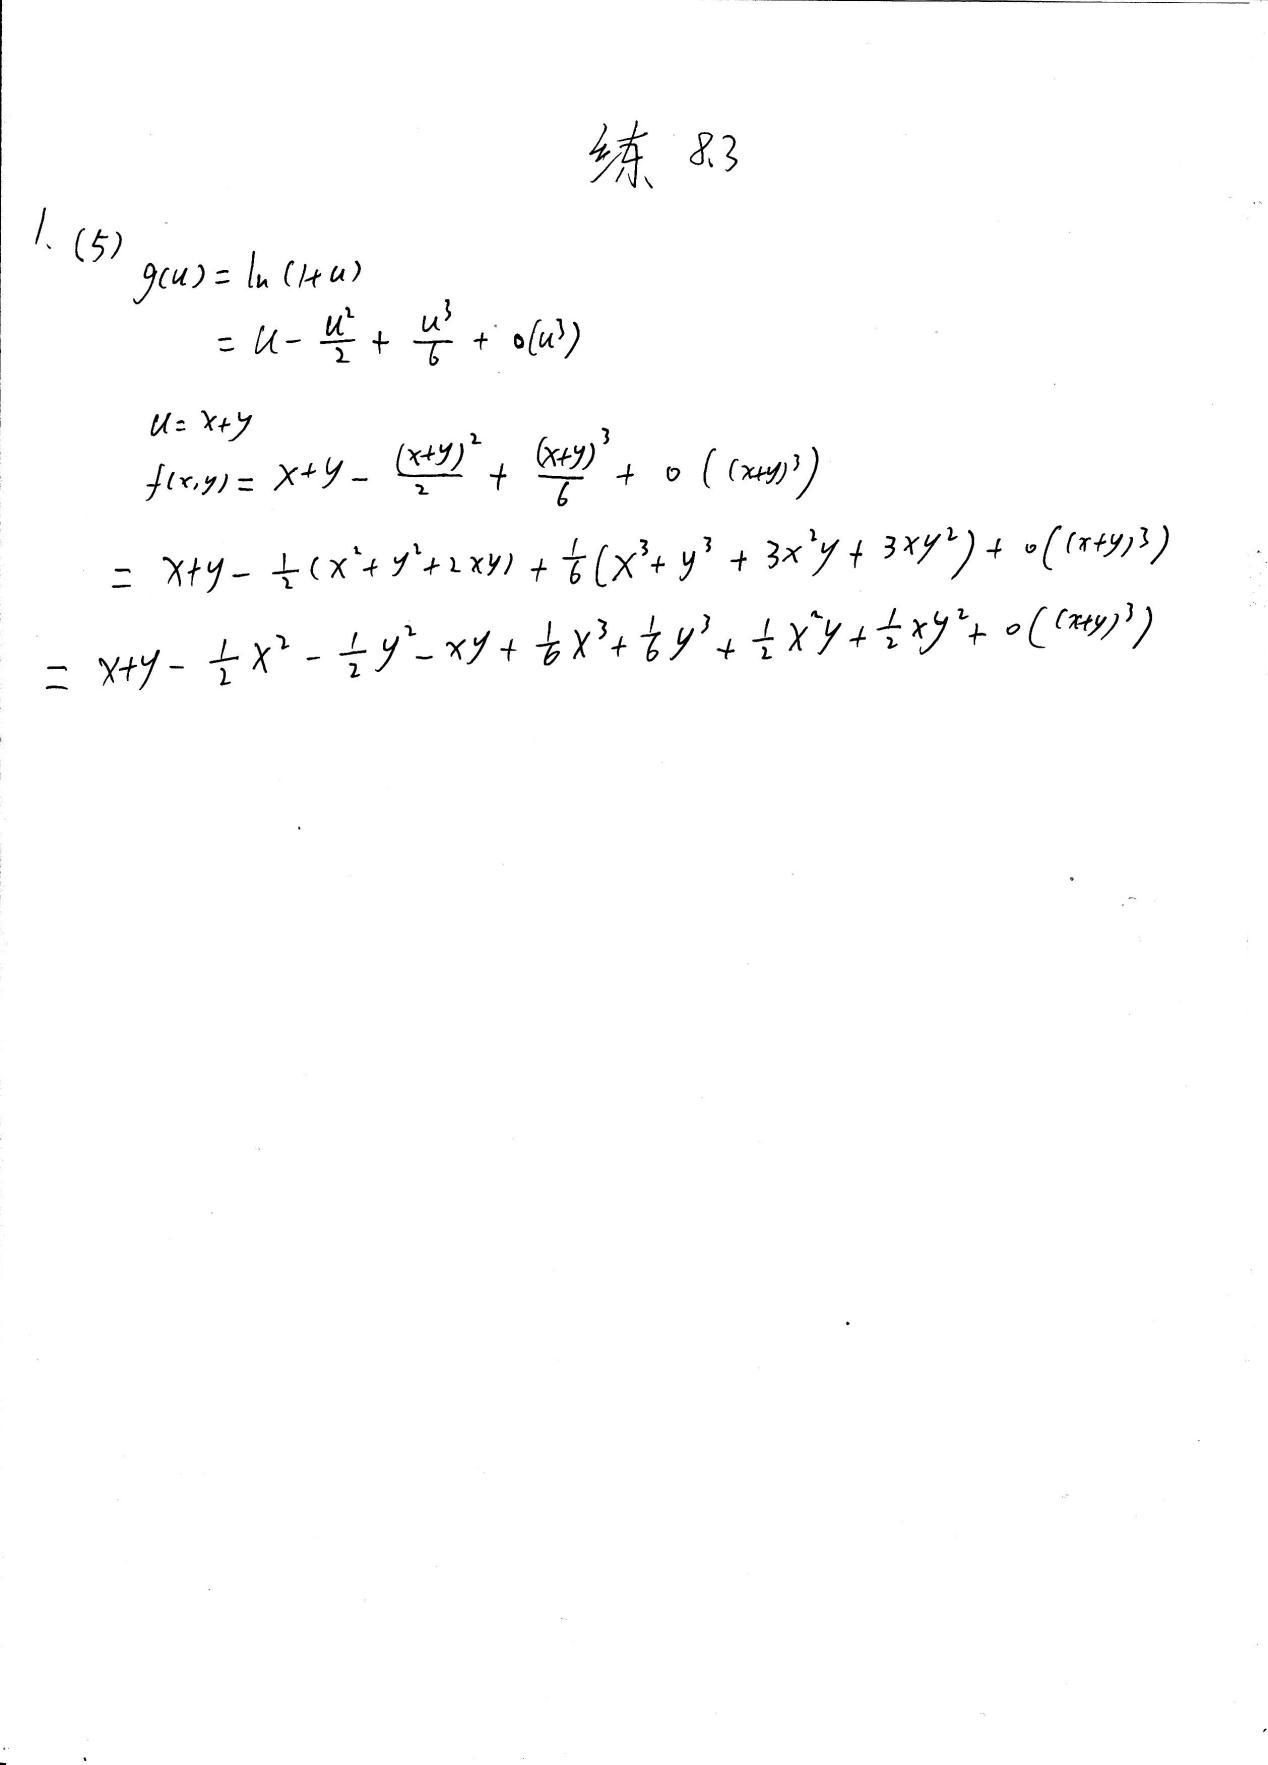 练 8.3
1. (5)
g(u) = ln (1+u)
= u - u²/2 + u³/6 + o(u³)
u = x+y
f(x,y) = x+y - (x+y)²/2 + (x+y)³/6 + o((x+y)³)
= x+y - 1/2 (x²+y²+2xy) + 1/6 (x³+y³+3x²y+3xy²) + o((x+y)³)
= x+y - 1/2 x² - 1/2 y² - xy + 1/6 x³ + 1/6 y³ + 1/2 x²y + 1/2 xy² + o((x+y)³)